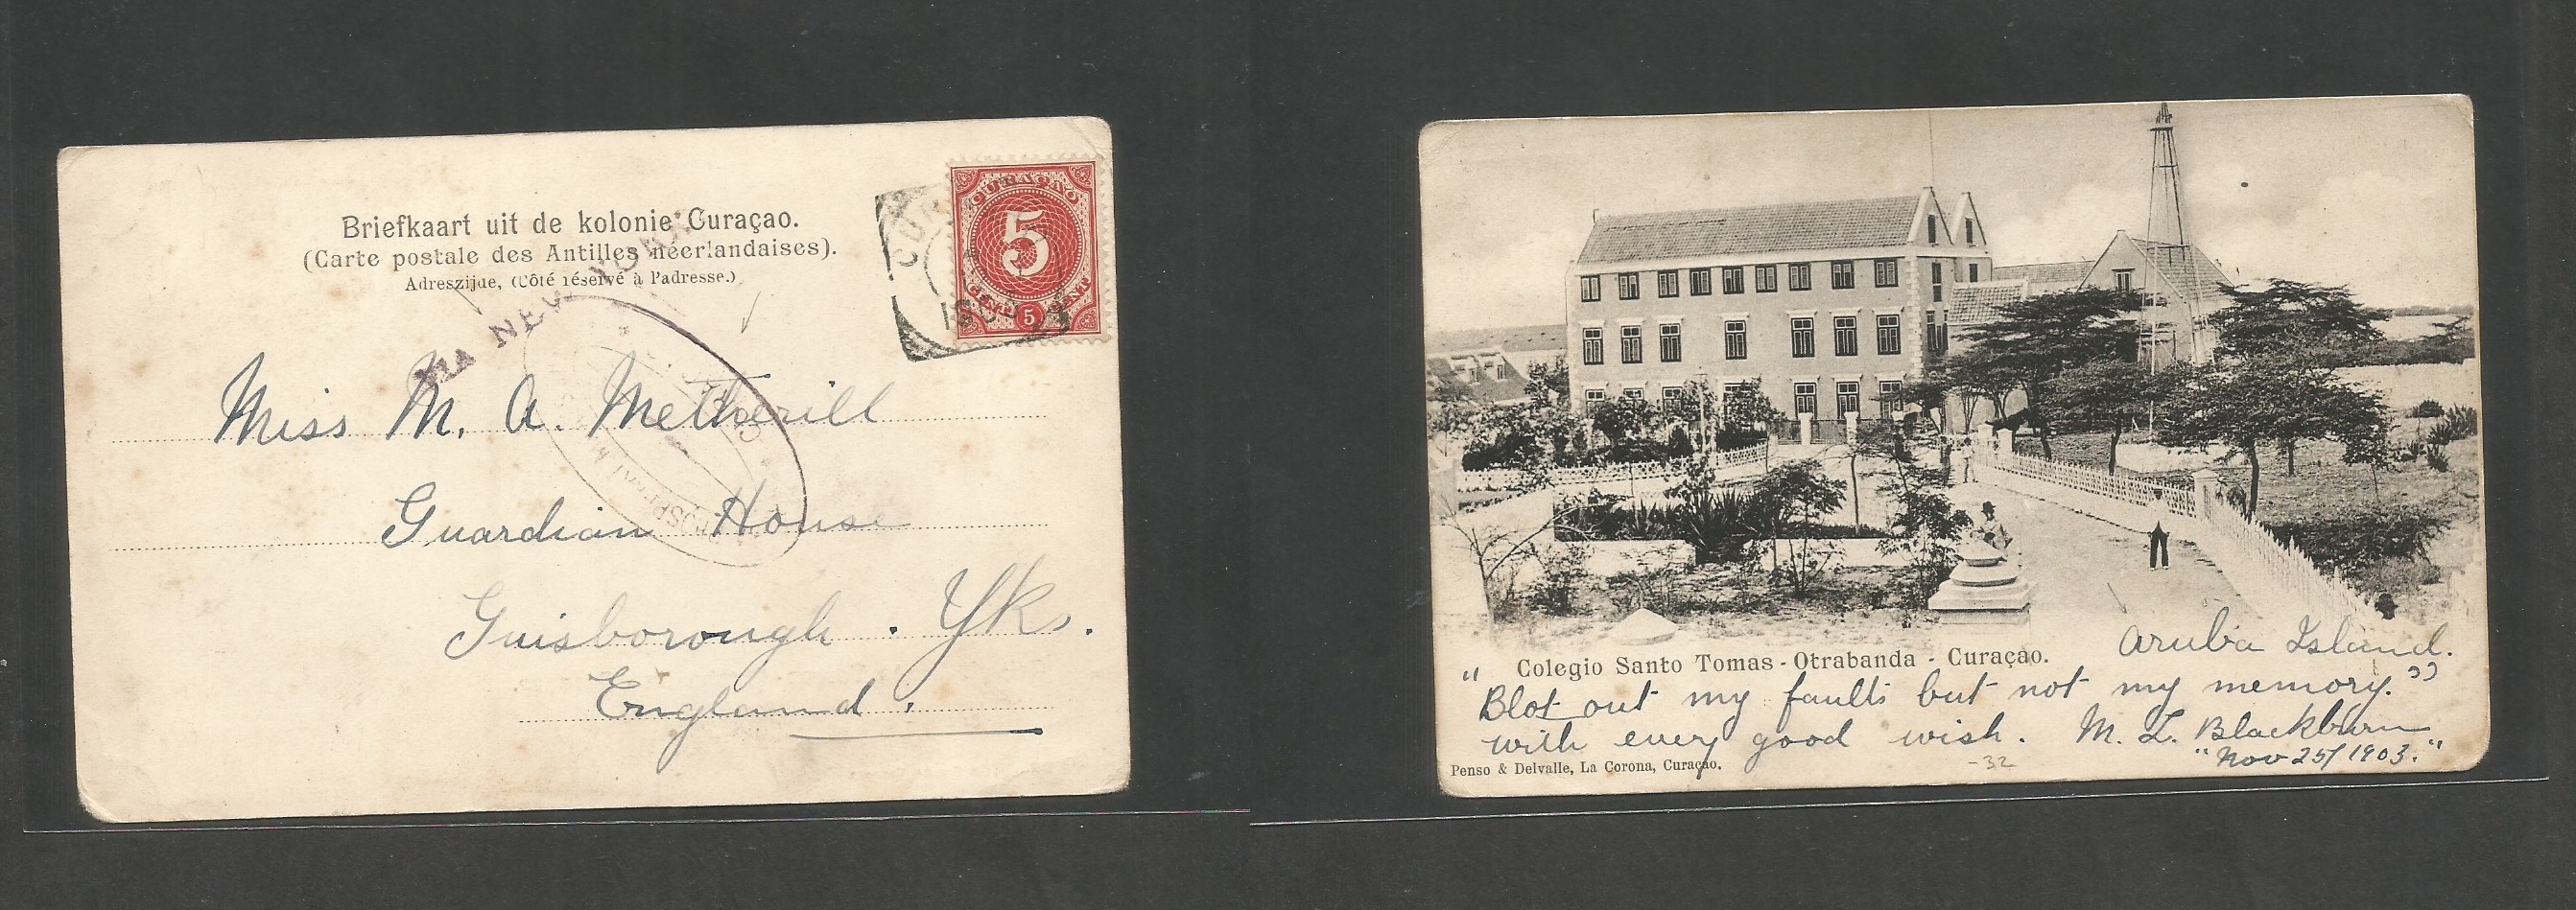 Briefkaart uit de kolonie Curaçao.
(Carte postale des Antilles néerlandaises).
Adreszijde, (Côté réservé à l'adresse.)
CURAÇAO
5
CENT 5 CENT
NEW YORK
Miss M. A. Metherill
Guardian House
Guisborough. Yk.
England.
Colegio Santo Tomas - Otrabanda - Curaçao.
Aruba Island.
"Blot out my faults but not my memory."
with every good wish. M. L. Blackburn
"Nov 25/1903."
Penso & Delvalle, La Corona, Curaçao.
-32